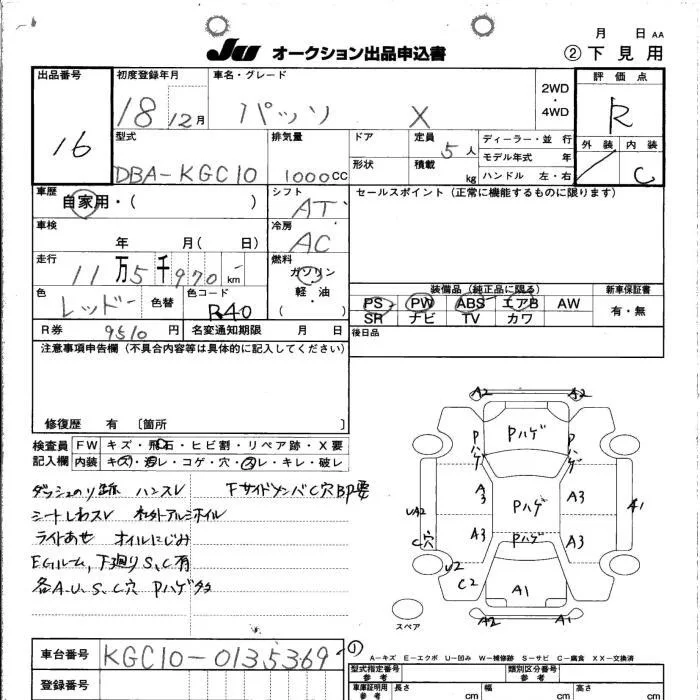 月 日 AA
JU オークション出品申込書
② 下見用
出品番号
16
初度登録年月
18 12月
車名・グレード
パッソ X
2WD
・
4WD
評価点
R
外装 内装
C
型式
DBA-KGC10
排気量
1000cc
ドア
形状
定員
5人
積載
kg
ディーラー・並行
モデル年式 年
ハンドル 左・右
車歴
自家用・( )
シフト
AT
セールスポイント(正常に機能するものに限ります)
車検
年 月( 日)
冷房
AC
走行
11万5千970km
燃料
ガソリン
軽・油
( )
色
レッド
色替
色コード
R40
装備品(純正品に限る)
新車保証書
PS PW ABS エアB AW
有・無
SR ナビ TV カワ
R券 9510円
名変通知期限 月 日
後日品
注意事項申告欄(不具合内容等は具体的に記入してください)
修復歴 有 〔箇所 〕
検査員
記入欄
FW キズ・飛石・ヒビ割・リペア跡・X要
内装 キズ・汚レ・コゲ・穴・スレ・キレ・破レ
ダッシュのり跡 ハンスレ 下サイドメンバC穴BP要
シートしわスレ 社外アルミホイル
ライトあせ オイルにじみ
EGルーム,下廻りS,C有
各A.U.S.C穴 Pハゲ多
A2 A2
P ハゲ Pハゲ P ハゲ
A3 Pハゲ A3
UA2 A1
C穴 A3 Pハゲ A3
U2
C2 A1
A2 A1
スペア
車台番号 KGC10-0135369
①
A-キズ E-エクボ U-凹み W-補修跡 S-サビ C-腐食 XX-交換済
登録番号
型式指定番号
参考
類別区分番号
参考
車庫証明用
参考
長さ cm
幅 cm
高さ cm